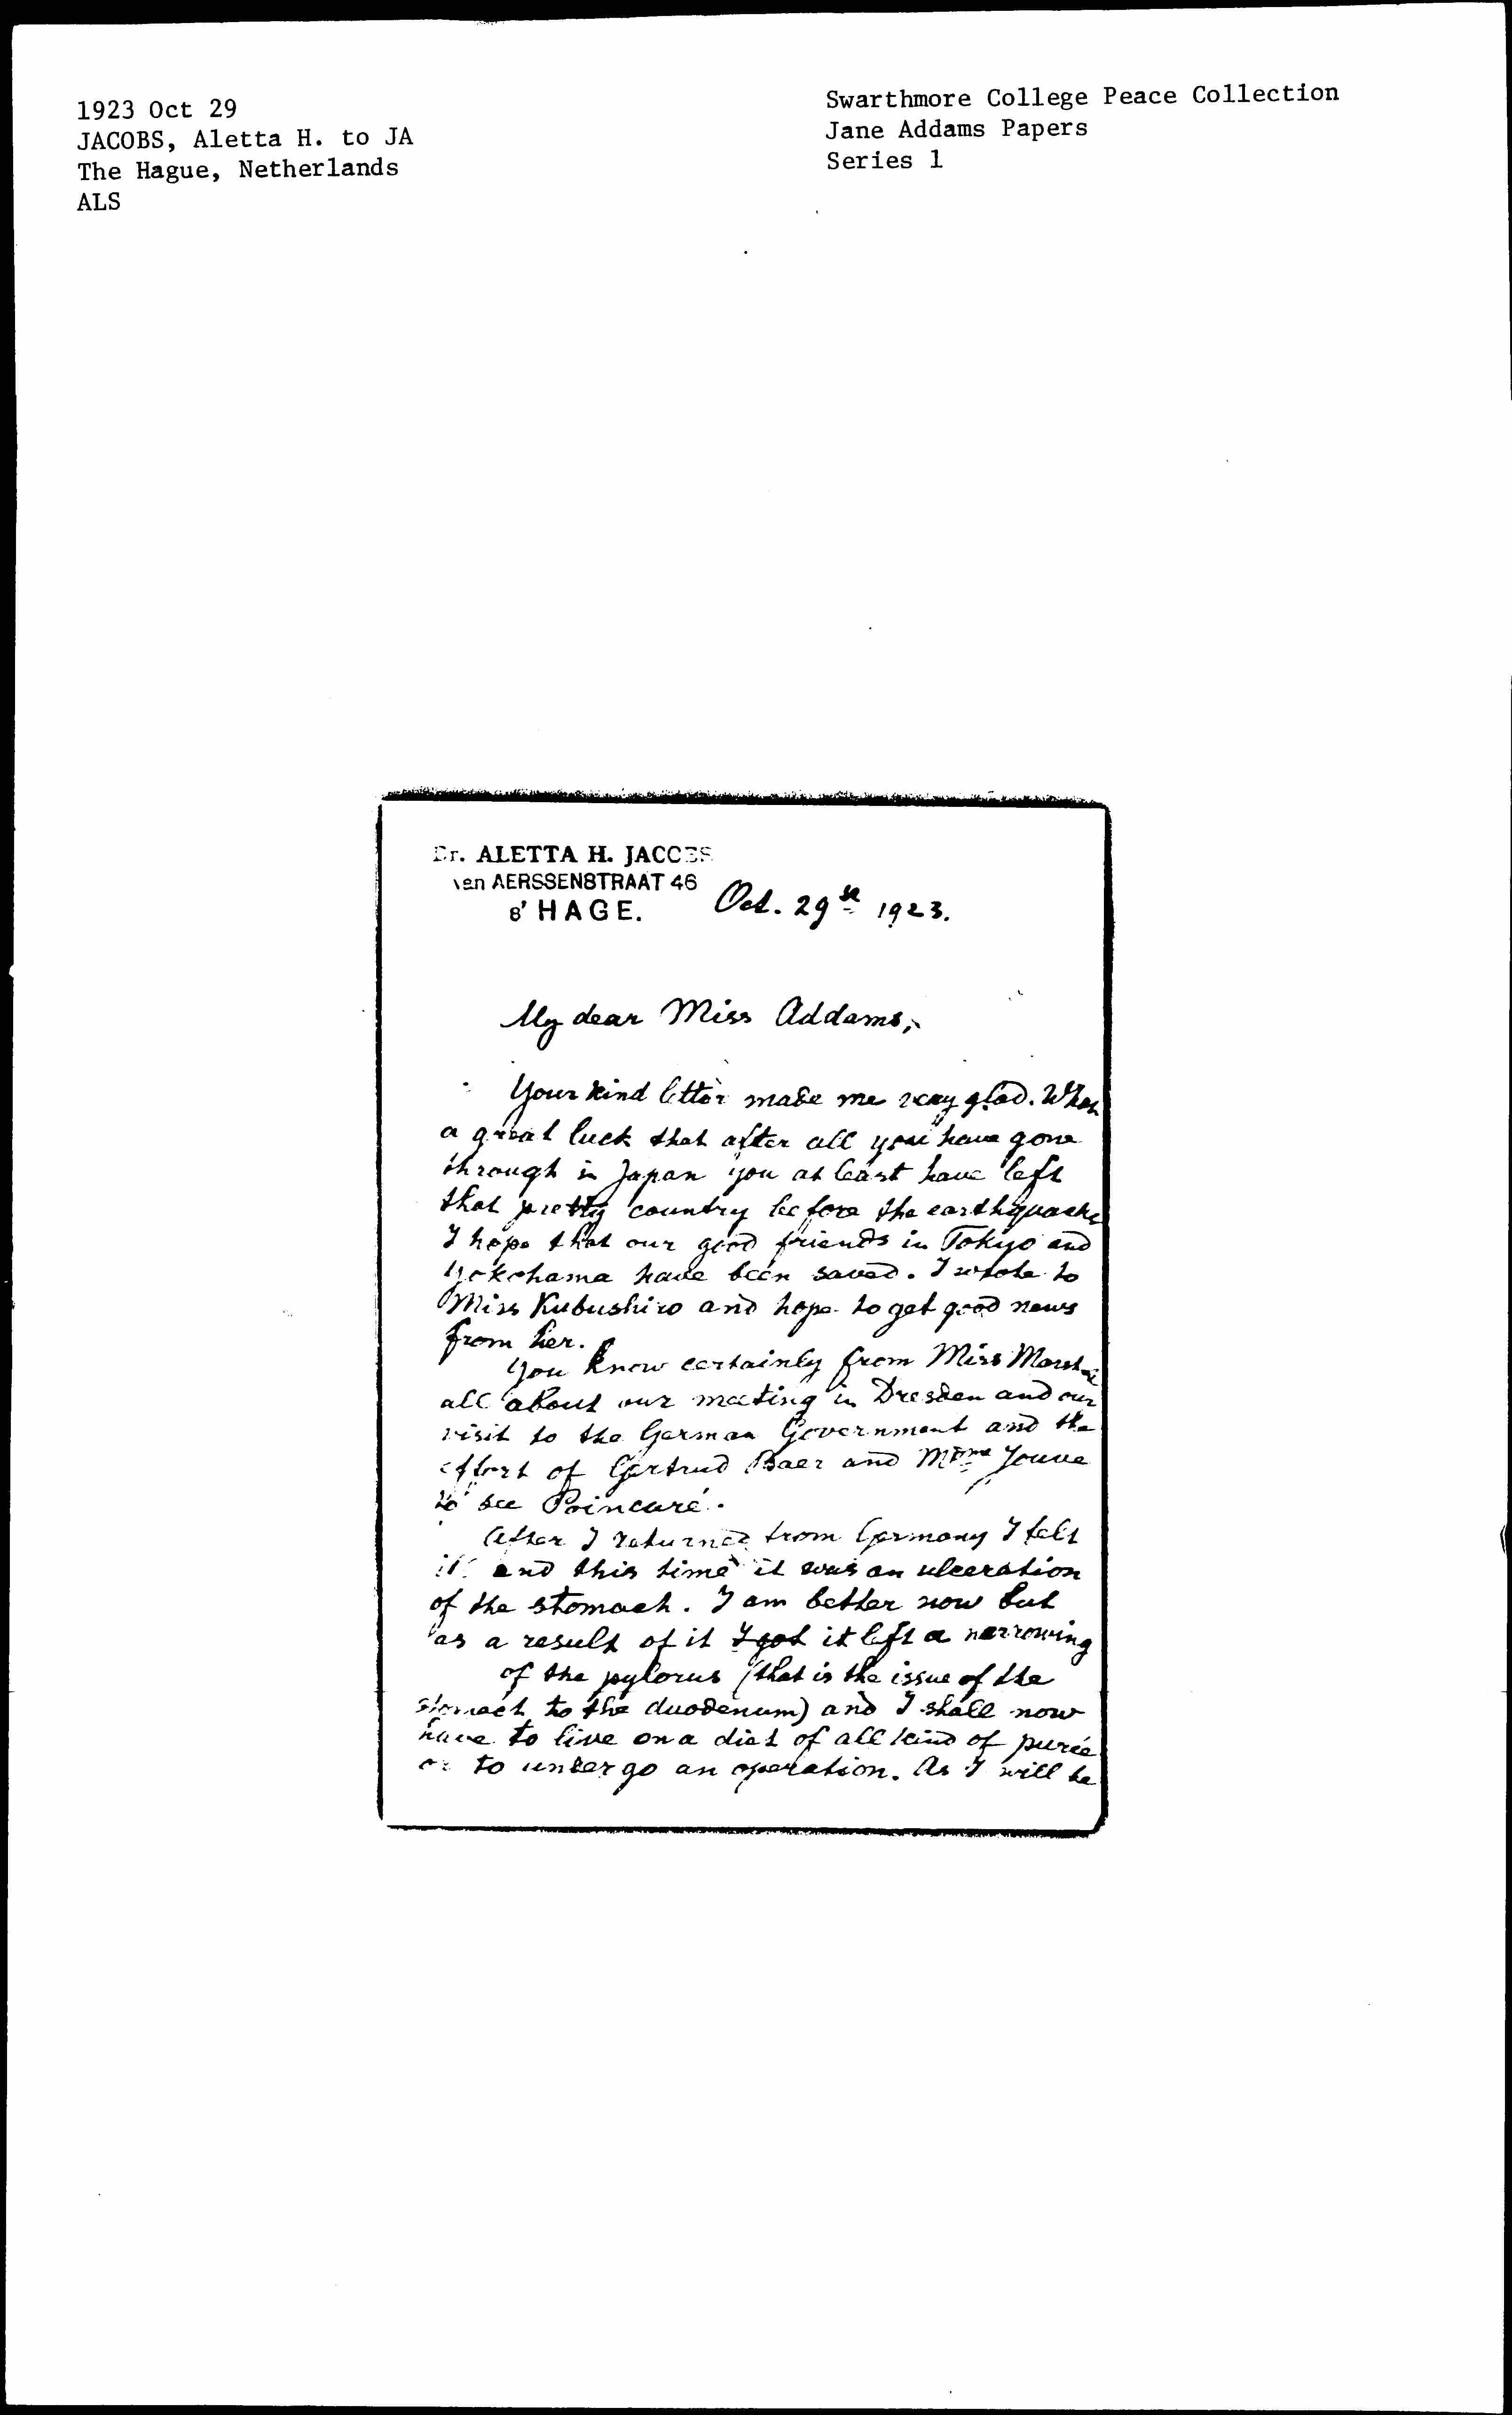 1923 Oct 29
JACOBS, Aletta H. to JA
The Hague, Netherlands
ALS
Swarthmore College Peace Collection
Jane Addams Papers
Series 1
Dr. ALETTA H. JACOBS
van AERSSENSTRAAT 46
s' HAGE.
Oct. 29st 1923.
My dear Miss Addams,
Your kind letter made me very glad. What
a great luck that after all you have gone
through in Japan you at least have left
that pretty country before the earthquacke
I hope that our good friends in Tokyo and
Yokohama have been saved. I wrote to
Miss Kubushiro and hope to get good news
from her.
You know certainly from Miss
all about our meeting in Dresden and our
visit to the German Government and the
effort of Gertrud Baer and Mme Jouve
to see Poincaré.
After I returned from Germany I felt
ill and this time it was an ulceration
of the stomach. I am better now but
as a result of it I got it left a narrowing
of the pylorus (that is the issue of the
stomach to the duodenum) and I shall now
have to live on a diet of all kind of purée
or to undergo an operation. As I will be